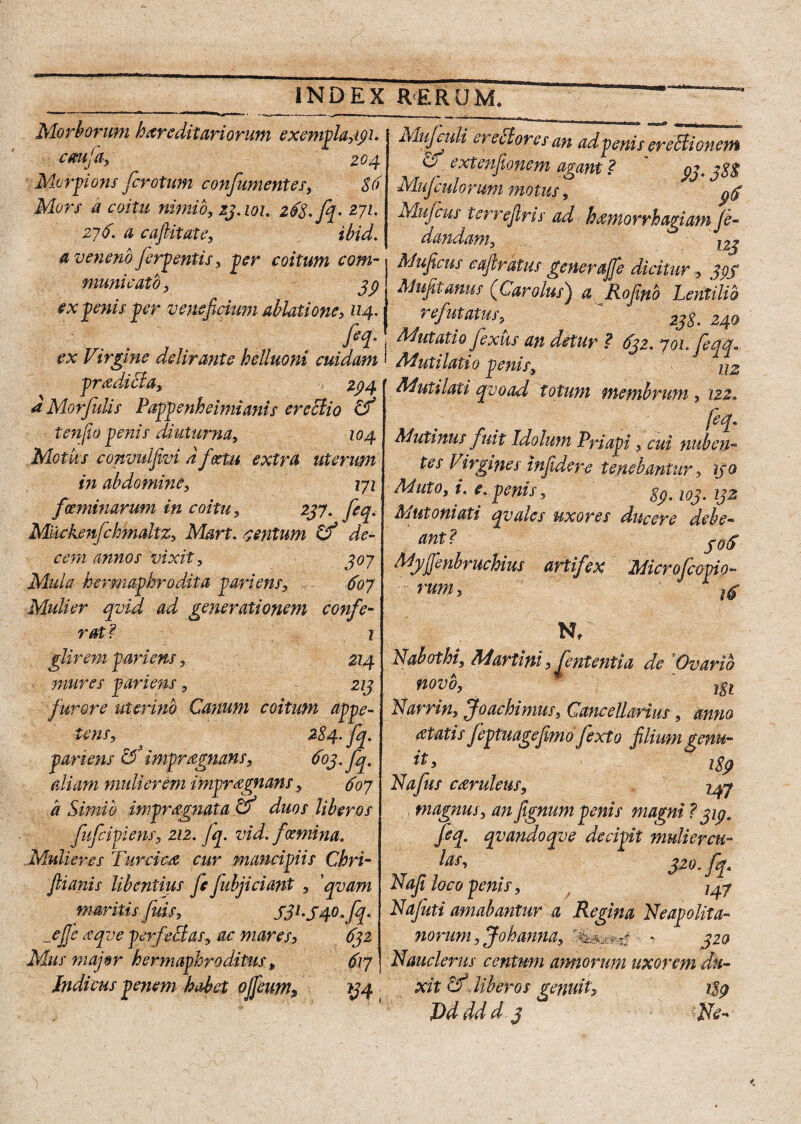 INDEX RERUM.
Morborum hæreditariorum exempla, 191.
causa, 204
Morpions scrotum consumentes, 86
Mors à coitu nimiò, 23. 101. 268. sq. 271.
276. a castitate, ibid.
a venenò serpentis, per coitum com-
municatò, 39
ex penis per veneficium ablatione, 114.
seq.
ex Virgine delirante helluoni cuidam
prædicta, 294
à Morsulis Pappenheimianis erectio &
tensio penis diuturna, 104
Motus convulsivi à fœtu extra uterum
in abdomine, 171
fœminarum in coitu, 237. seq.
Mückenschmaltz, Mart. centum & de-
cem annos vixit, 307
Mula hermaphrodita pariens, 607
Mulier qvid ad generationem confe-
rat? 1
glirem pariens, 214
mures pariens, 213
furore uterinò Canum coitum appe-
tens, 284. sq.
pariens & imprægnans, 603. sq.
aliam mulierem imprægnans, 607
à Simiò imprægnata & duos liberos
suscipiens, 212. sq. vid. fœmina.
Mulieres Turcicæ cur mancipiis Chri-
stianis libentius se subjiciant, qvam
maritis suis, 531. 540. sq.
esse æqve perfectas, ac mares, 632
Mus major hermaphroditus, 617
Indicus penem habet osseum, 134
Musculi erectores an ad penis erectionem
& extensionem agant? 93. 388
Musculorum motus, 96
Muscus terrestris ad hæmorrhagiam se-
dandam, 123
Musicus castratus generasse dicitur, 395
Musitanus (Carolus) a Rosinò Lentiliò
refutatus, 238. 240
Mutatio sexûs an detur? 632. 701. seqq.
Mutilatio penis, 112
Mutilati qvoad totum membrum, 122.
seq.
Mutinus fuit Idolum Priapi, cui nuben-
tes Virgines insidere tenebantur, 150
Muto, i. e. penis, 89. 103. 132
Mutoniati qvales uxores ducere debe-
ant? 506
Myssenbruchius artifex Microscopio-
rum, 16
N.
Nabothi, Martini, sententia de Ovariò
novò, 181
Narrin, Joachimus, Cancellarius, anno
ætatis septuagesimo sexto filium genu-
it, 189
Nasus cæruleus, 147
magnus, an signum penis magni? 319.
seq. qvandoqve decipit muliercu-
las, 320. sq.
Nasi loco penis, 147
Nasuti amabantur a Regina Neapolita-
norum, Johanna, 320
Nauclerus centum annorum uxorem du-
xit & liberos genuit, 189
Dd dd d 3
Ne-